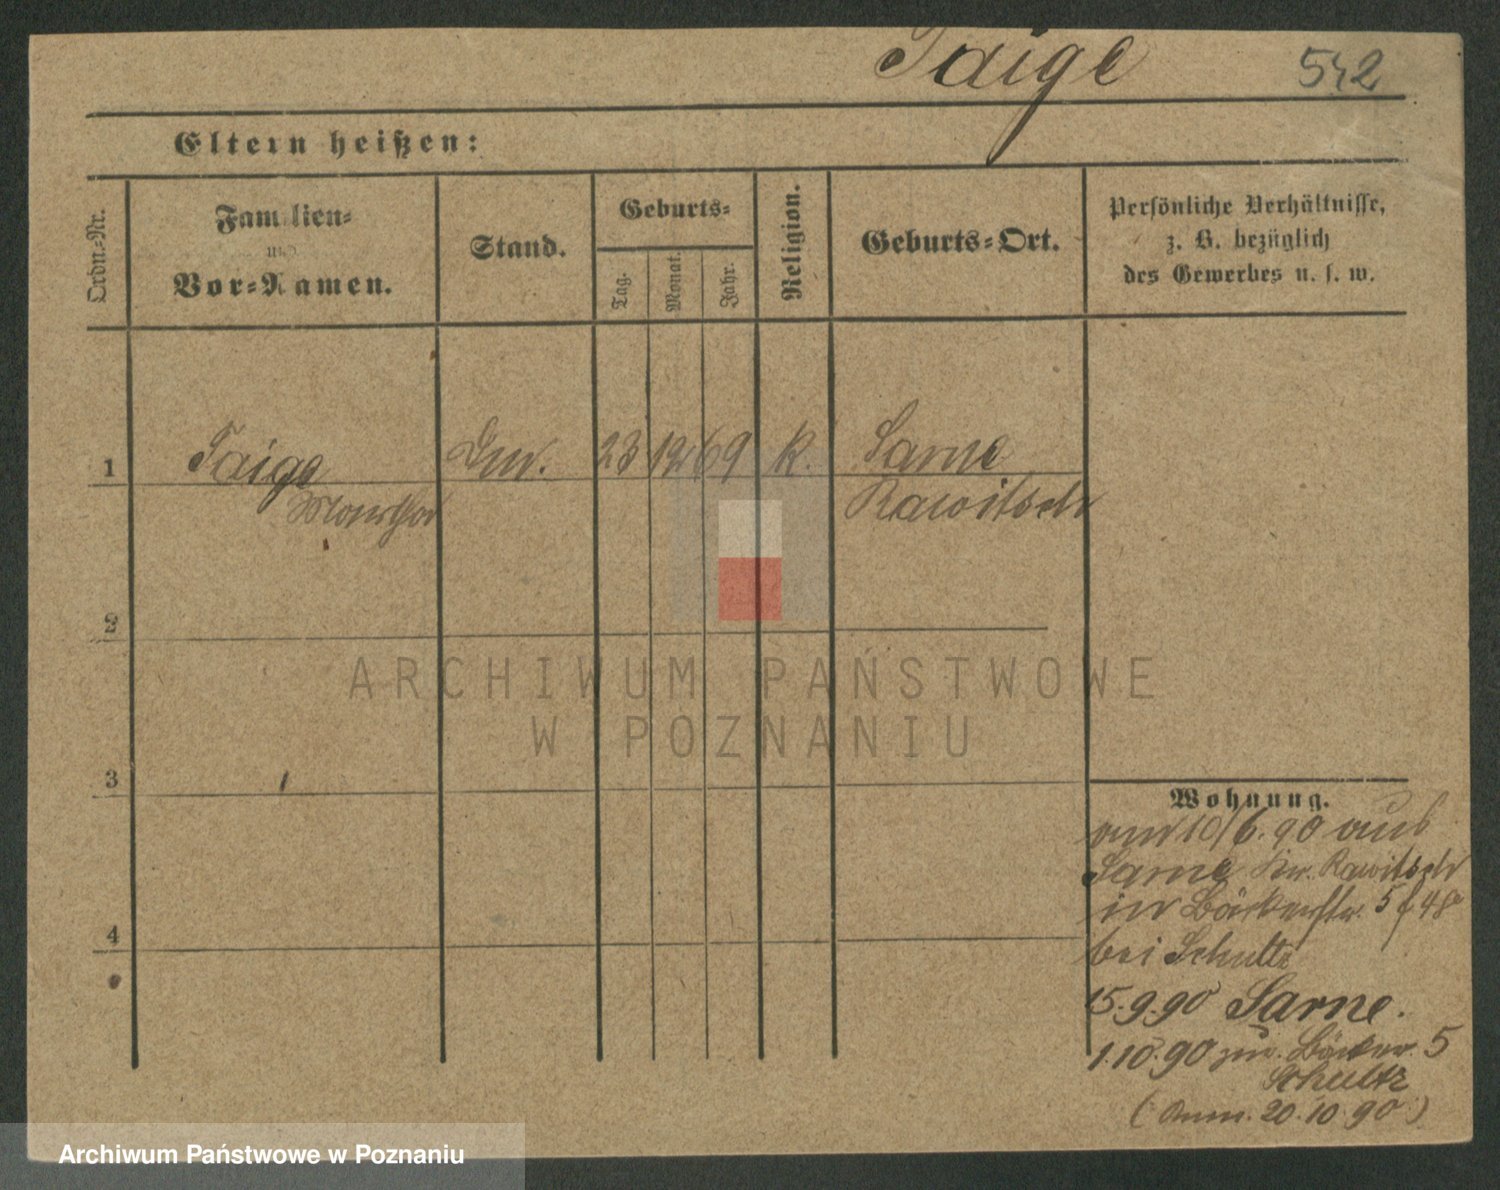 Taige 542
Eltern heißen:
Ordn.=Nr.
Familien=
und
Vor=Namen.
Stand.
Geburts=
Tag.
Monat.
Jahr.
Religion.
Geburts=Ort.
Persönliche Verhältnisse,
z. B. bezüglich
des Gewerbes u. s. w.
1 Taige 23 12 69 K. Sarne
Rawitsch
2
3
4
Wohnung.
10/6.90 aus
Sarne Kr. Rawitsch
in Bäckerstr. 5
bei Schultz
15.9.90 Sarne.
1.10.90 zur. Bäcker. 5
Schultz
(Anm. 20.10.90)
ARCHIWUM PAŃSTWOWE
W POZNANIU
Archiwum Państwowe w Poznaniu